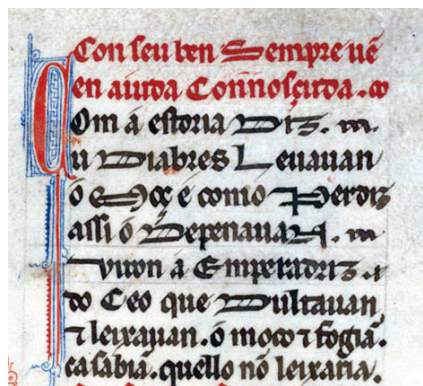 Con seu ben Sempre uẽ
en aiuda Connosçuda. ⁊
Com á estoria Diz. m.
u Diabres Leuauan
o Moç é como Perdiz
assi o Depenauan. m
Viron á Emperadriz. ⁊
do Ceo que Dultauan,
⁊ leixauan. ó moço ⁊ fogiã.
ca sabiã. quello nõ leixaria.